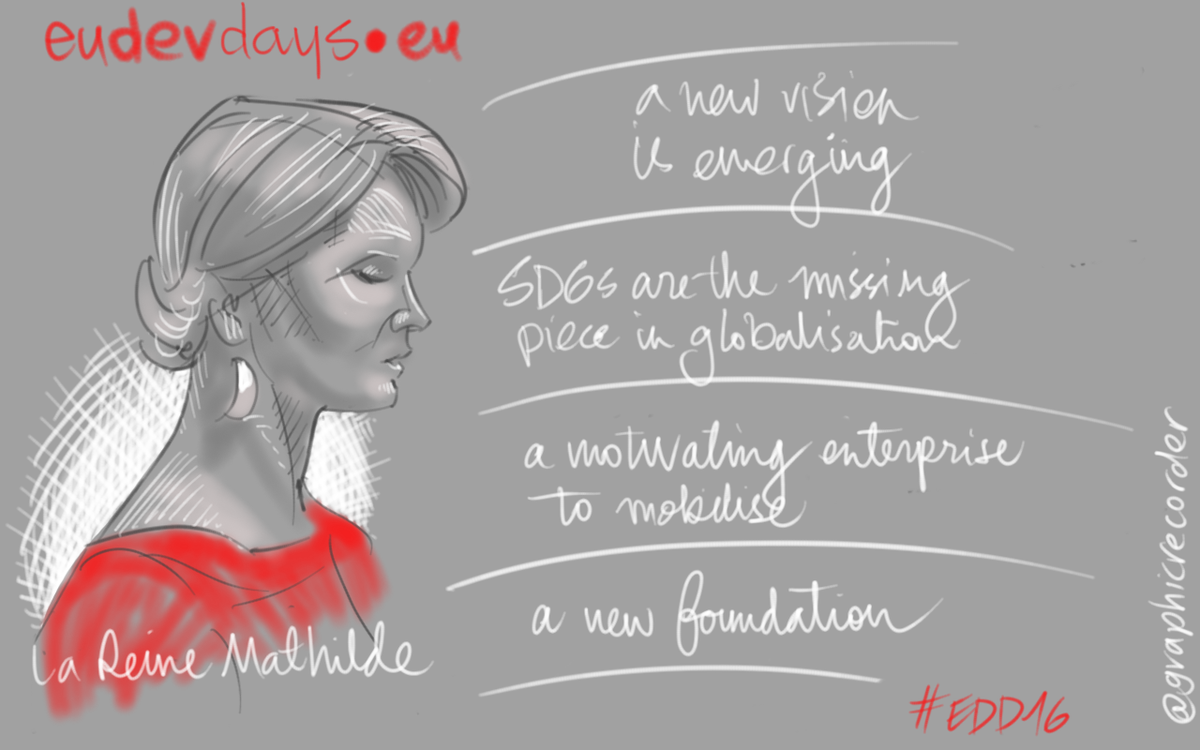 eudevdays.eu
a new vision
is emerging
SDGs are the missing
piece in globalisation
a motivating enterprise
to mobilise
a new foundation
La Reine Mathilde
#EDD16
@graphicrecorder